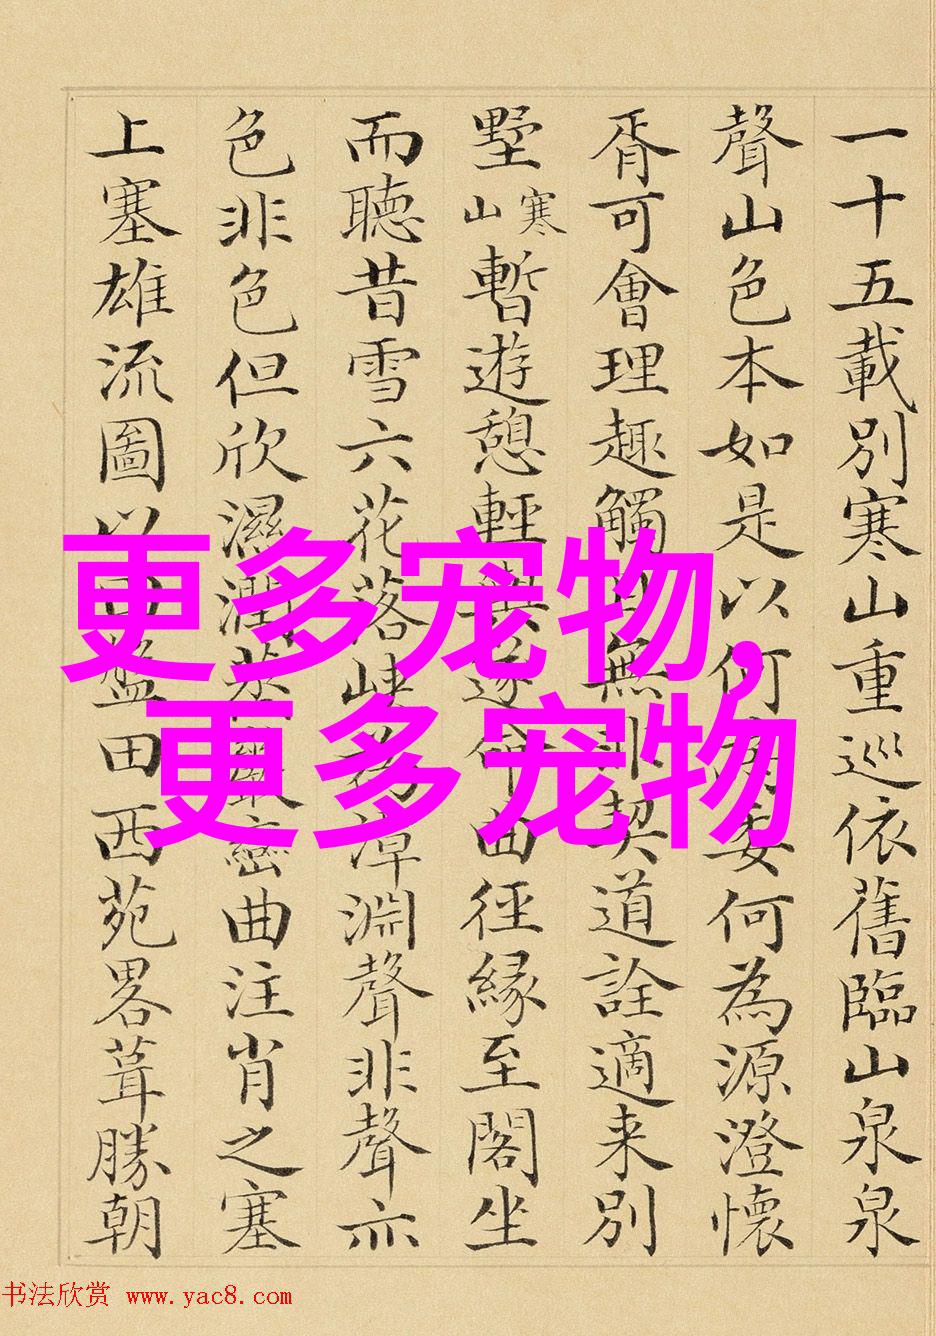 一十五載別寒山重巡依舊臨山泉泉
聲山色本如是以何委何為源澄懷
胥可會理趣觸無契道詮適来別
墅寒山暫遊憩輕逐曲徑緣至閣坐
而聽昔雪六花落峽漳淵聲非聲亦
色非色但欣濕潤巒曲注肖之塞
上塞雄流圖以盤田西苑畧葺勝朝
更多宠物,
更多宠物
书法欣赏 www.yac8.com